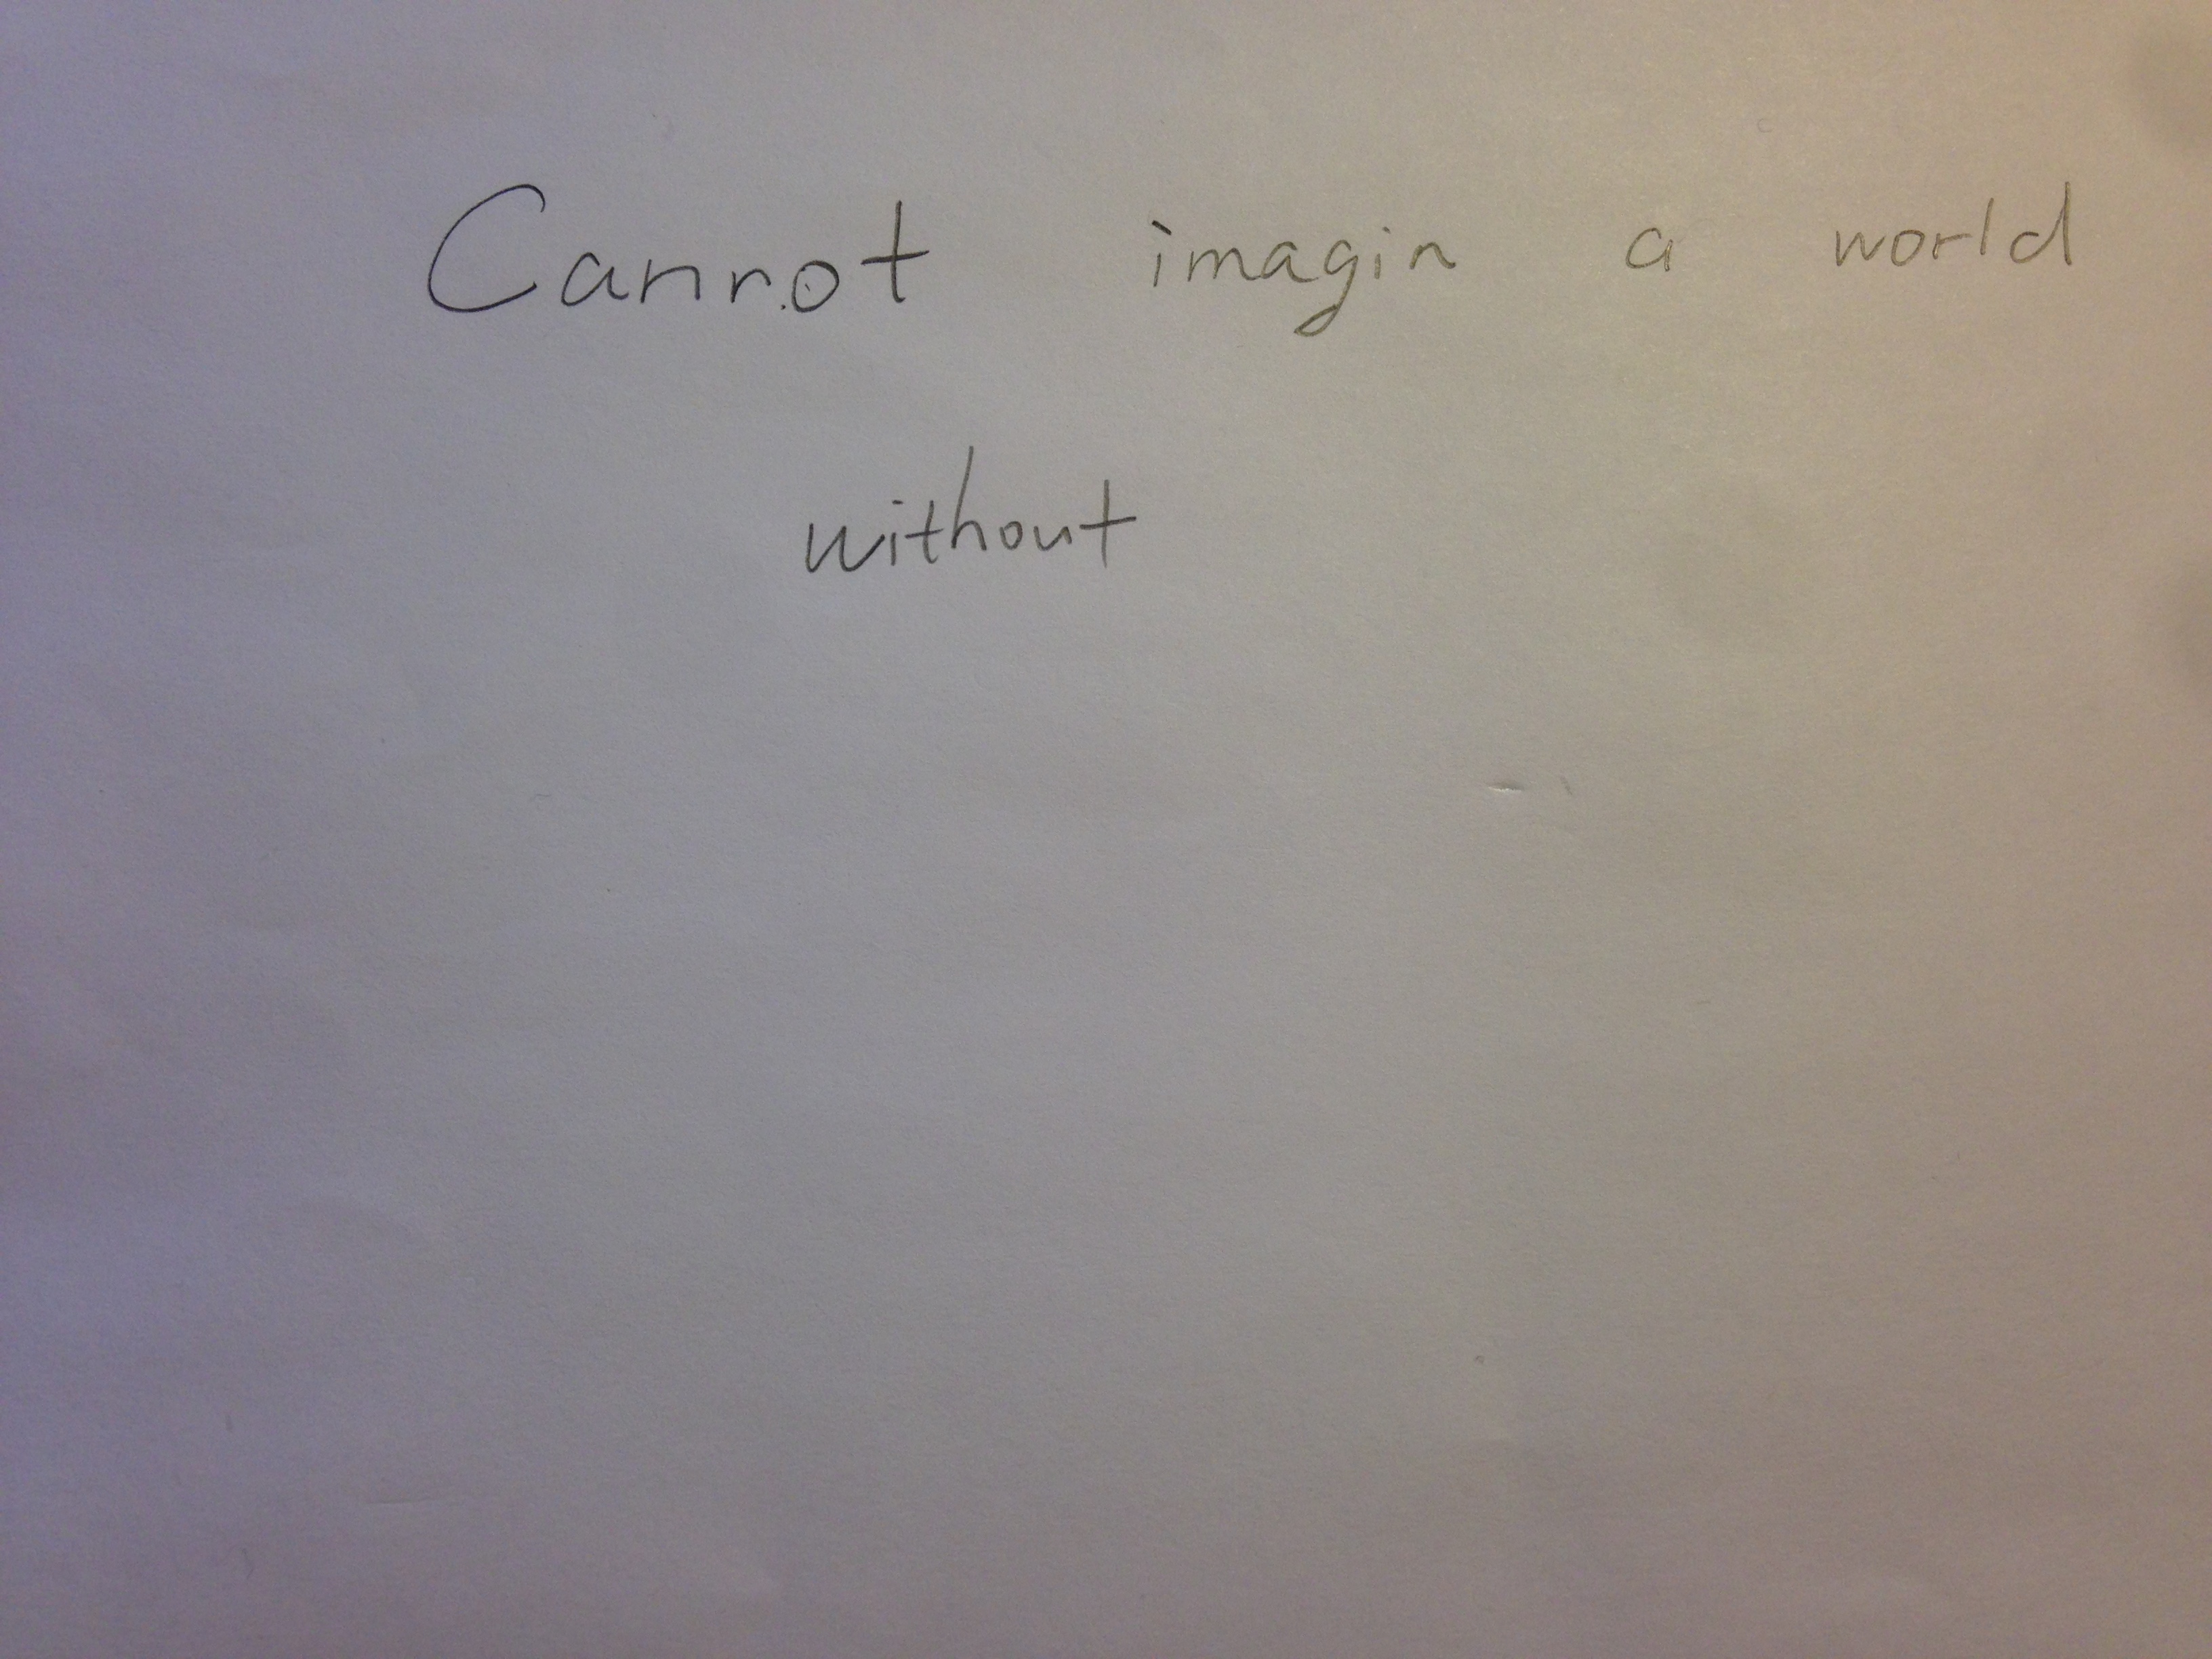 Cannot imagin a world
without